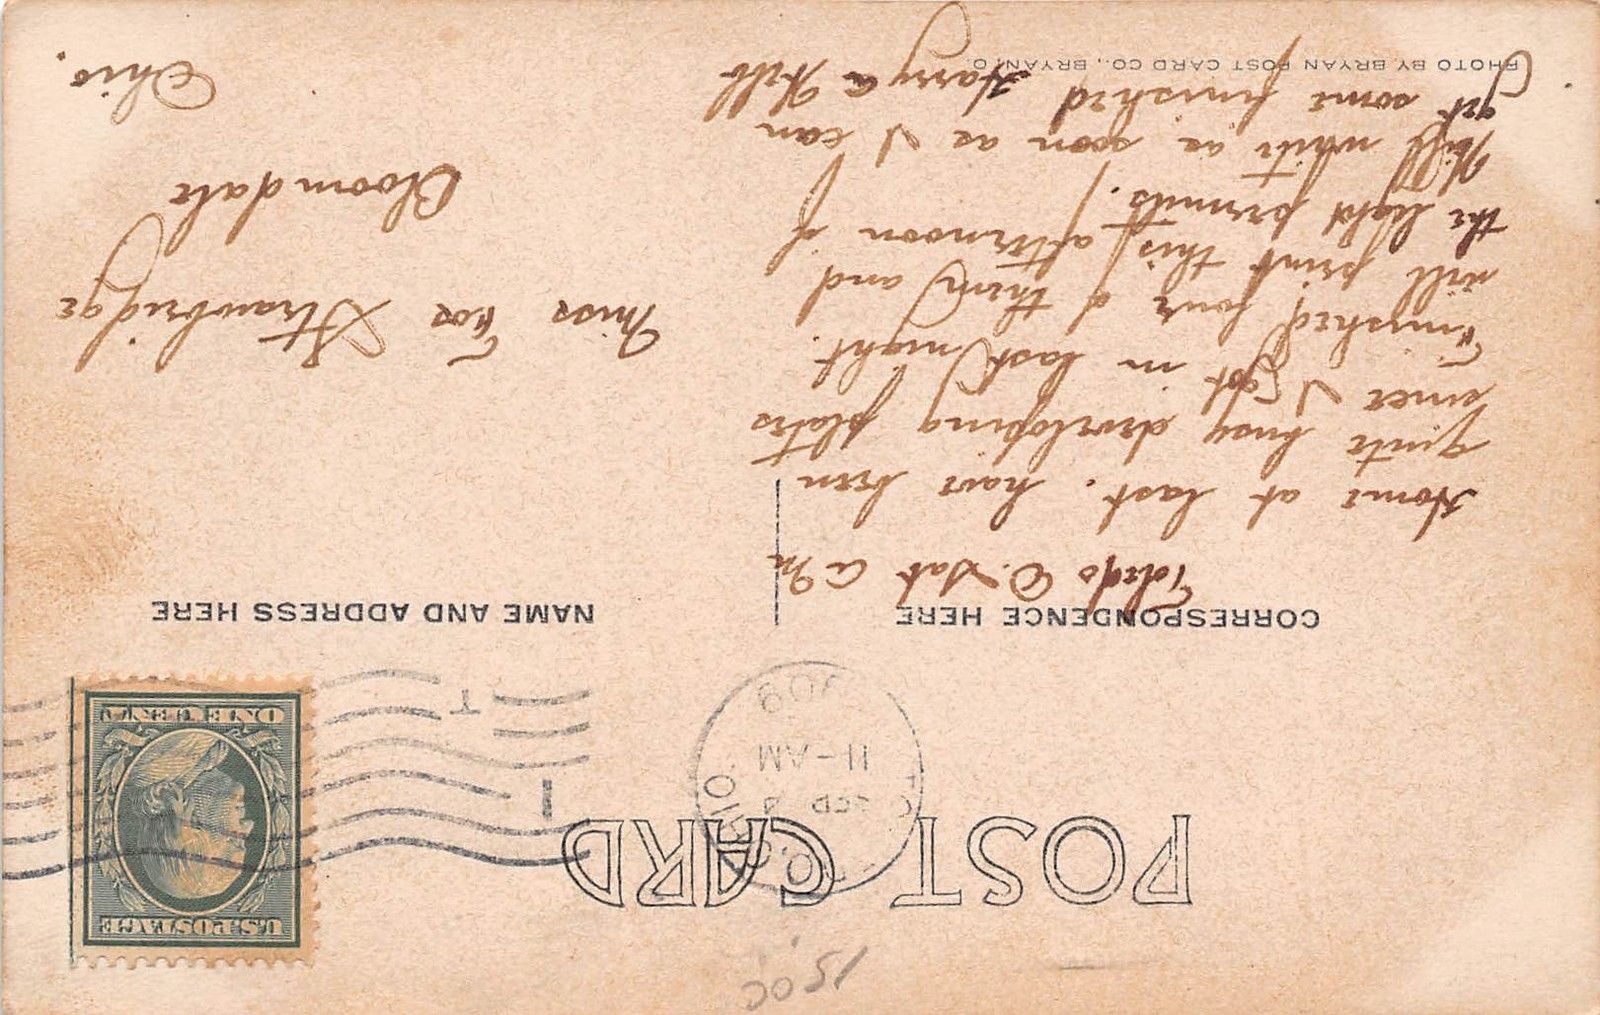 POST CARD
150C
TOLEDO, OHIO
SEP 4
11-AM
'09
T
1
U.S. POSTAGE
ONE CENT
CORRESPONDENCE HERE
NAME AND ADDRESS HERE
Toledo O. Sat A M
Home at last. have been
quite busy developing plates
since I got in last night.
Finished four d them and
will print this afternoon if
the light permits.
Will write as soon as I can
get some finished Harry A Hill
PHOTO BY BRYAN POST CARD CO., BRYAN, O.
Miss Fae Strawbridge
Bloomdale
Ohio.